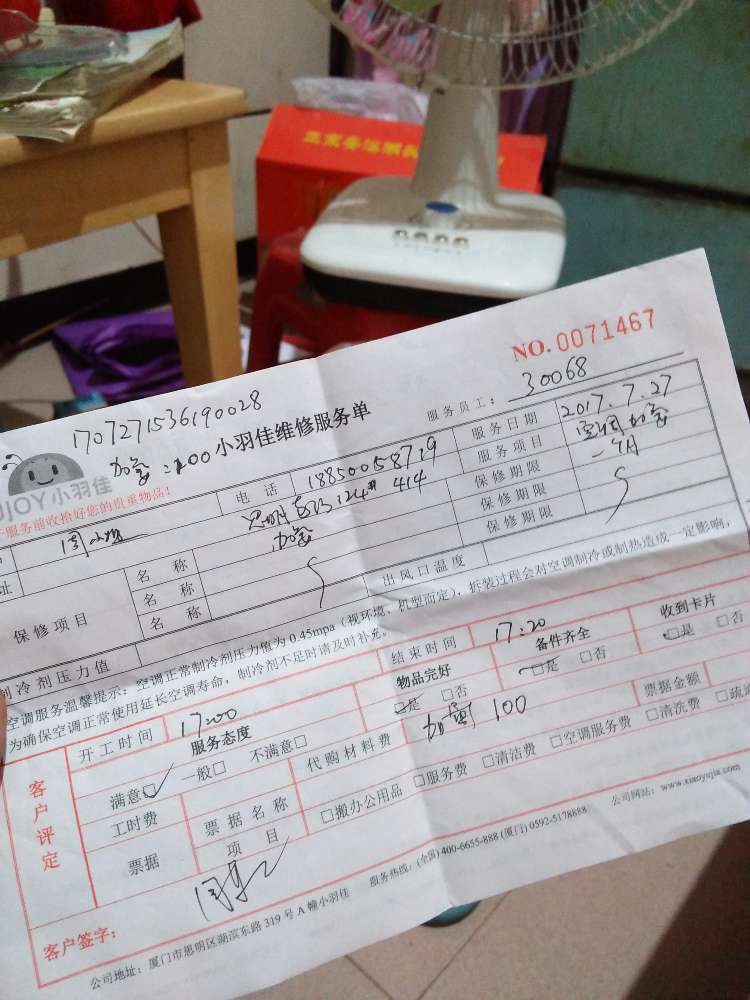 NO.0071467
170727153619 0028
加氨:100
小羽佳维修服务单
服务员工: 30068
JOY小羽佳
服务前收拾好您的贵重物品!
电话 18850058719
服务日期 2017.7.27
服务项目 空调加氨
124# 414
保修期限 一个月
保修期限
保修期限
保修项目
名称
名称
名称
制冷剂压力值
出风口温度
空调服务温馨提示:空调正常制冷剂压力值为0.45mpa(视环境、机型而定),拆装过程会对空调制冷或制热造成一定影响,
为确保空调正常使用延长空调寿命,制冷剂不足时请及时补充。
客户评定
开工时间 17:00
结束时间 17:20
服务态度
物品完好
备件齐全
收到卡片
满意□ 一般□ 不满意□
□是 □否
□是 □否
□是 □否
工时费
代购材料费
100
票据金额
票据
票据名称
项目
□搬办公用品 □服务费 □清洁费 □空调服务费 □清洗费 □疏通
客户签字:
公司地址:厦门市思明区湖滨东路319号A幢小羽佳 服务热线:(全国)400-6655-888 (厦门)0592-5178888 公司网站:www.xiaoyujia.com